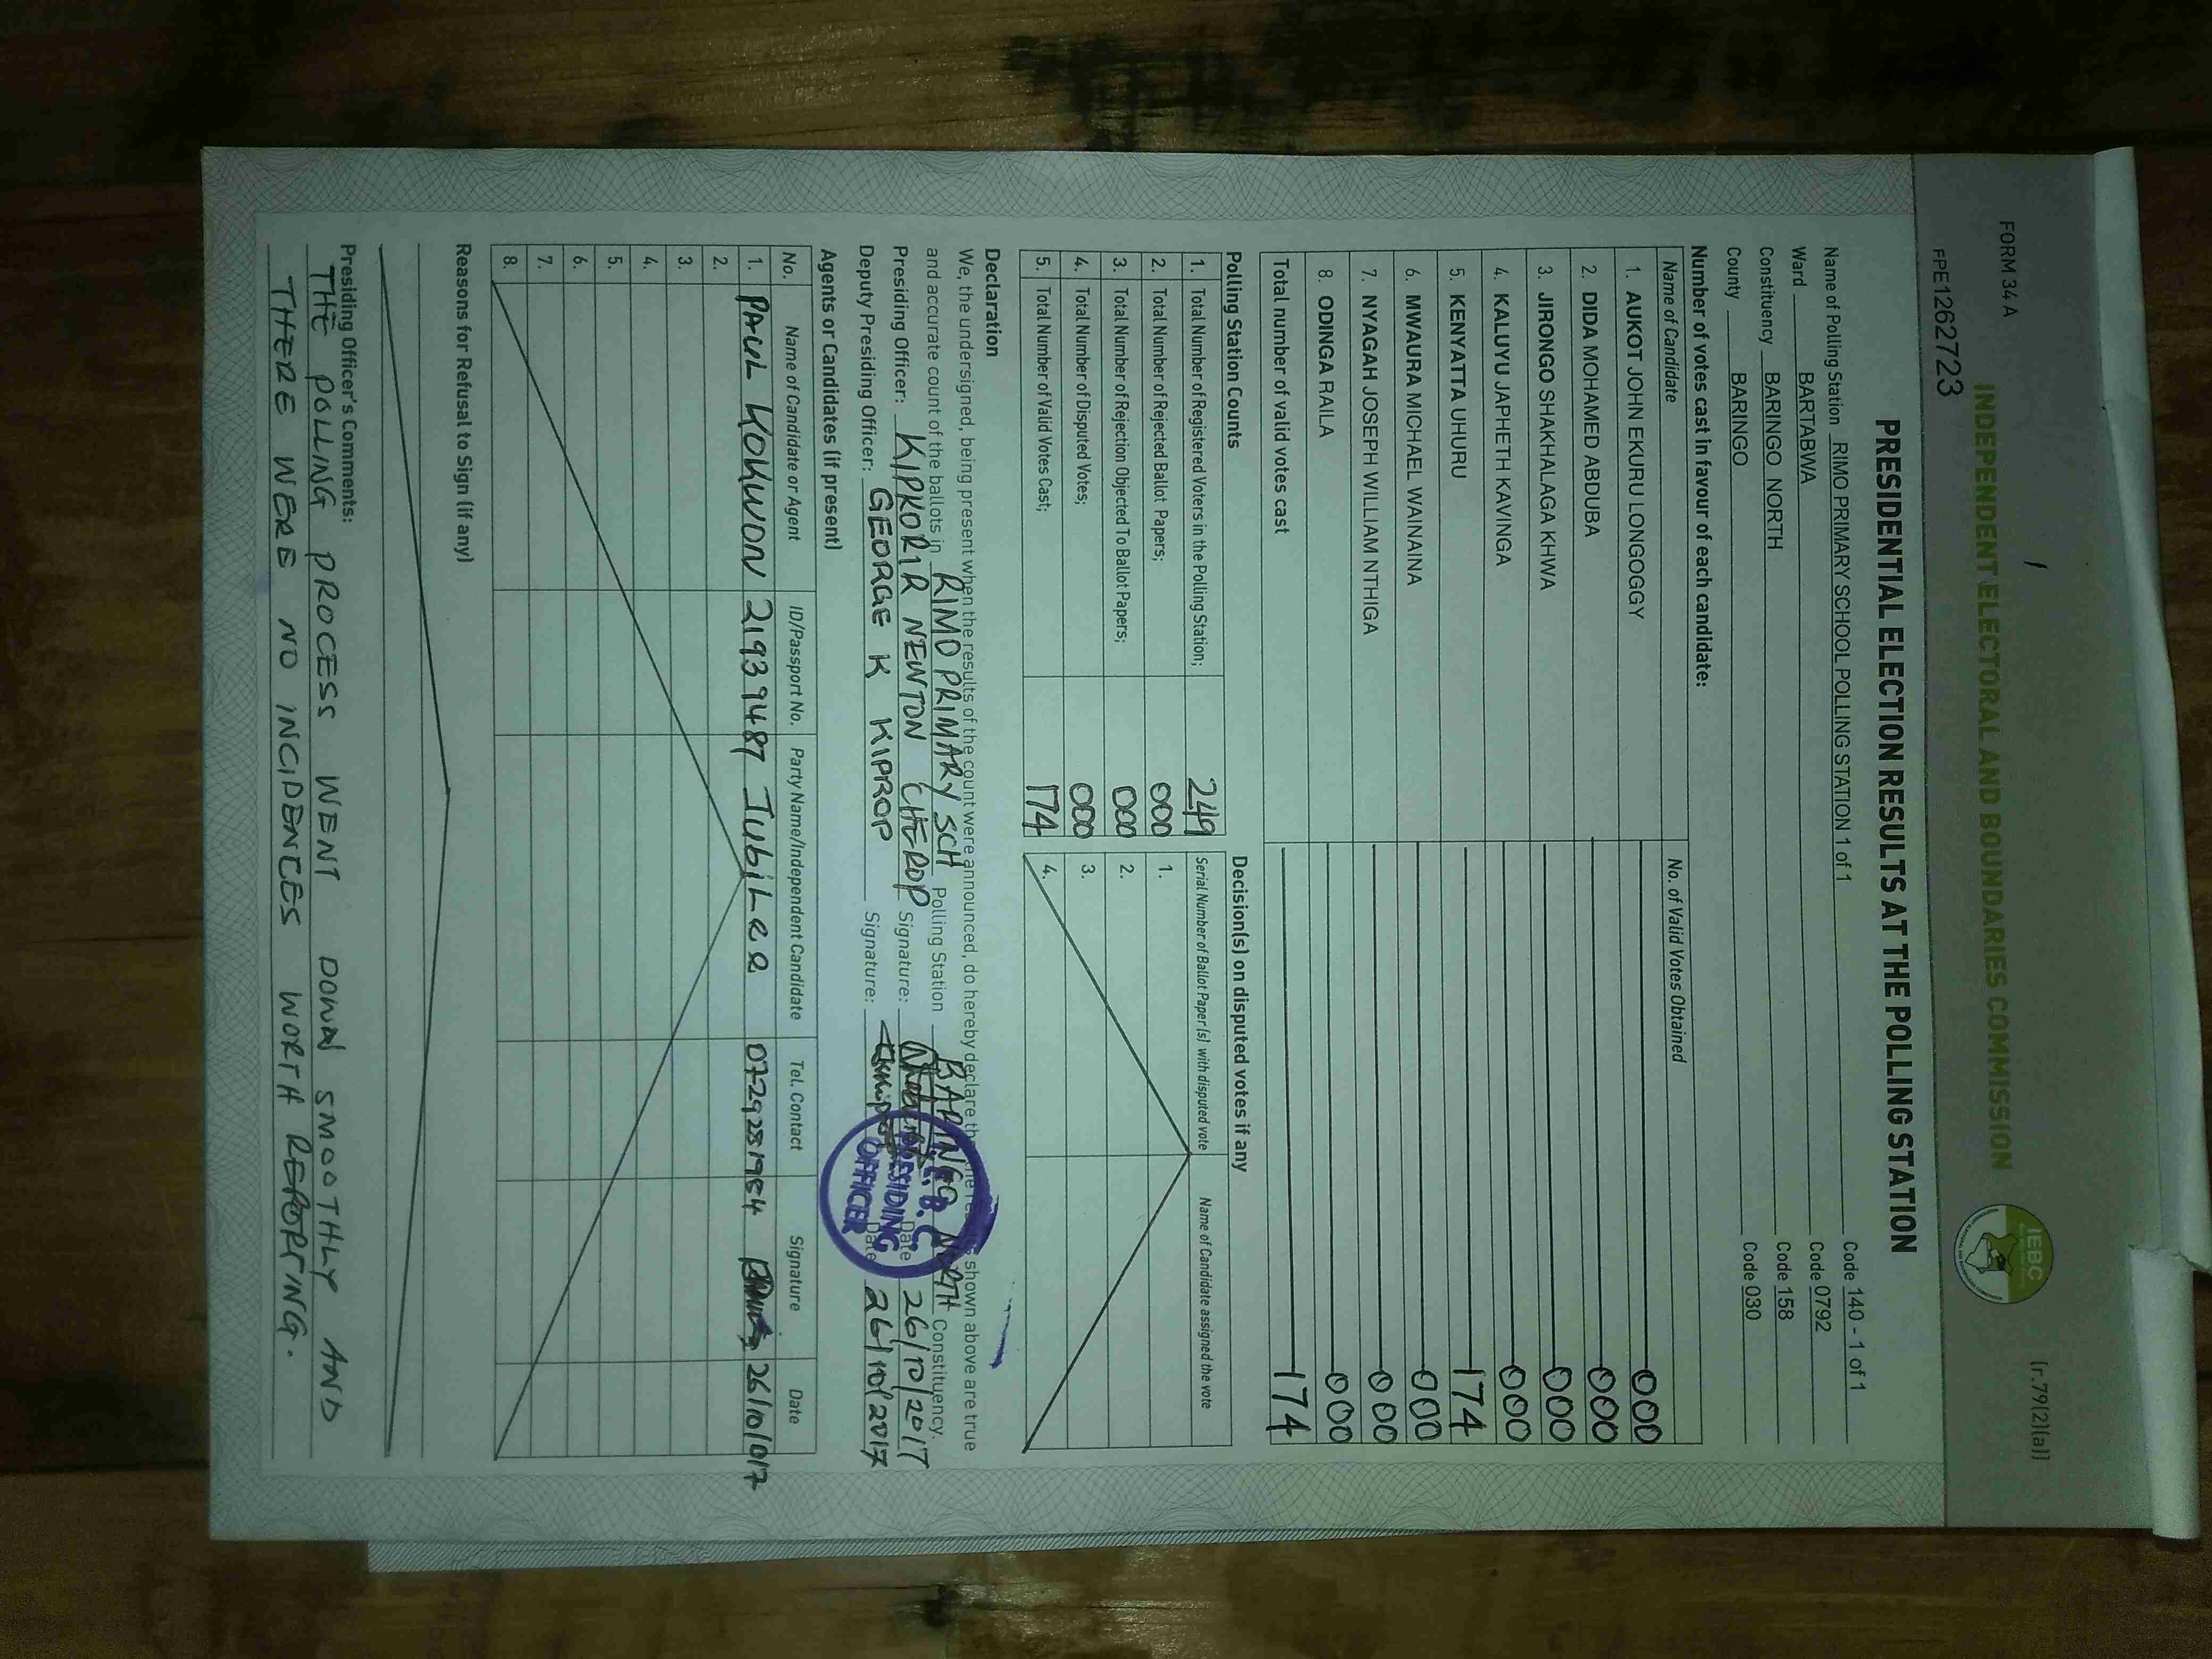 FORM 34 A
(r.79(2)(a))
INDEPENDENT ELECTORAL AND BOUNDARIES COMMISSION
IEBC
FPE1262723
PRESIDENTIAL ELECTION RESULTS AT THE POLLING STATION
Name of Polling Station RIMO PRIMARY SCHOOL POLLING STATION 1 of 1 Code 140 - 1 of 1
Ward BARTABWA Code 0792
Constituency BARINGO NORTH Code 158
County BARINGO Code 030
Number of votes cast in favour of each candidate:
Name of Candidate No. of Valid Votes Obtained
1. AUKOT JOHN EKURU LONGOGGY 000
2. DIDA MOHAMED ABDUBA 000
3. JIRONGO SHAKHALAGA KHWA 000
4. KALUYU JAPHETH KAVINGA 000
5. KENYATTA UHURU 174
6. MWAURA MICHAEL WAINAINA 000
7. NYAGAH JOSEPH WILLIAM NTHIGA 000
8. ODINGA RAILA 000
Total number of valid votes cast 174
Polling Station Counts
1. Total Number of Registered Voters in the Polling Station; 249
2. Total Number of Rejected Ballot Papers; 000
3. Total Number of Rejection Objected To Ballot Papers; 000
4. Total Number of Disputed Votes; 000
5. Total Number of Valid Votes Cast; 174
Decision(s) on disputed votes if any
Serial Number of Ballot Paper(s) with disputed vote Name of Candidate assigned the vote
1.
2.
3.
4.
Declaration
We, the undersigned, being present when the results of the count were announced, do hereby declare that the results shown above are true
and accurate count of the ballots in RIMO PRIMARY SCH Polling Station BARINGO NORTH Constituency.
Presiding Officer: KIPKORIR NEWTON CHEROP Signature: Date 26/10/2017
Deputy Presiding Officer: GEORGE K KIPROP Signature: Date 26/10/2017
PRESIDING
OFFICER
Agents or Candidates (if present)
No. Name of Candidate or Agent ID/Passport No. Party Name/Independent Candidate Tel. Contact Signature Date
1. PAUL KOKWON 21939487 JubiLee 0729281984 26/10/017
2.
3.
4.
5.
6.
7.
8.
Reasons for Refusal to Sign (if any)
Presiding Officer's Comments:
THE POLLING PROCESS WENT DOWN SMOOTHLY AND
THERE WERE NO INCIDENCES WORTH REPORTING.